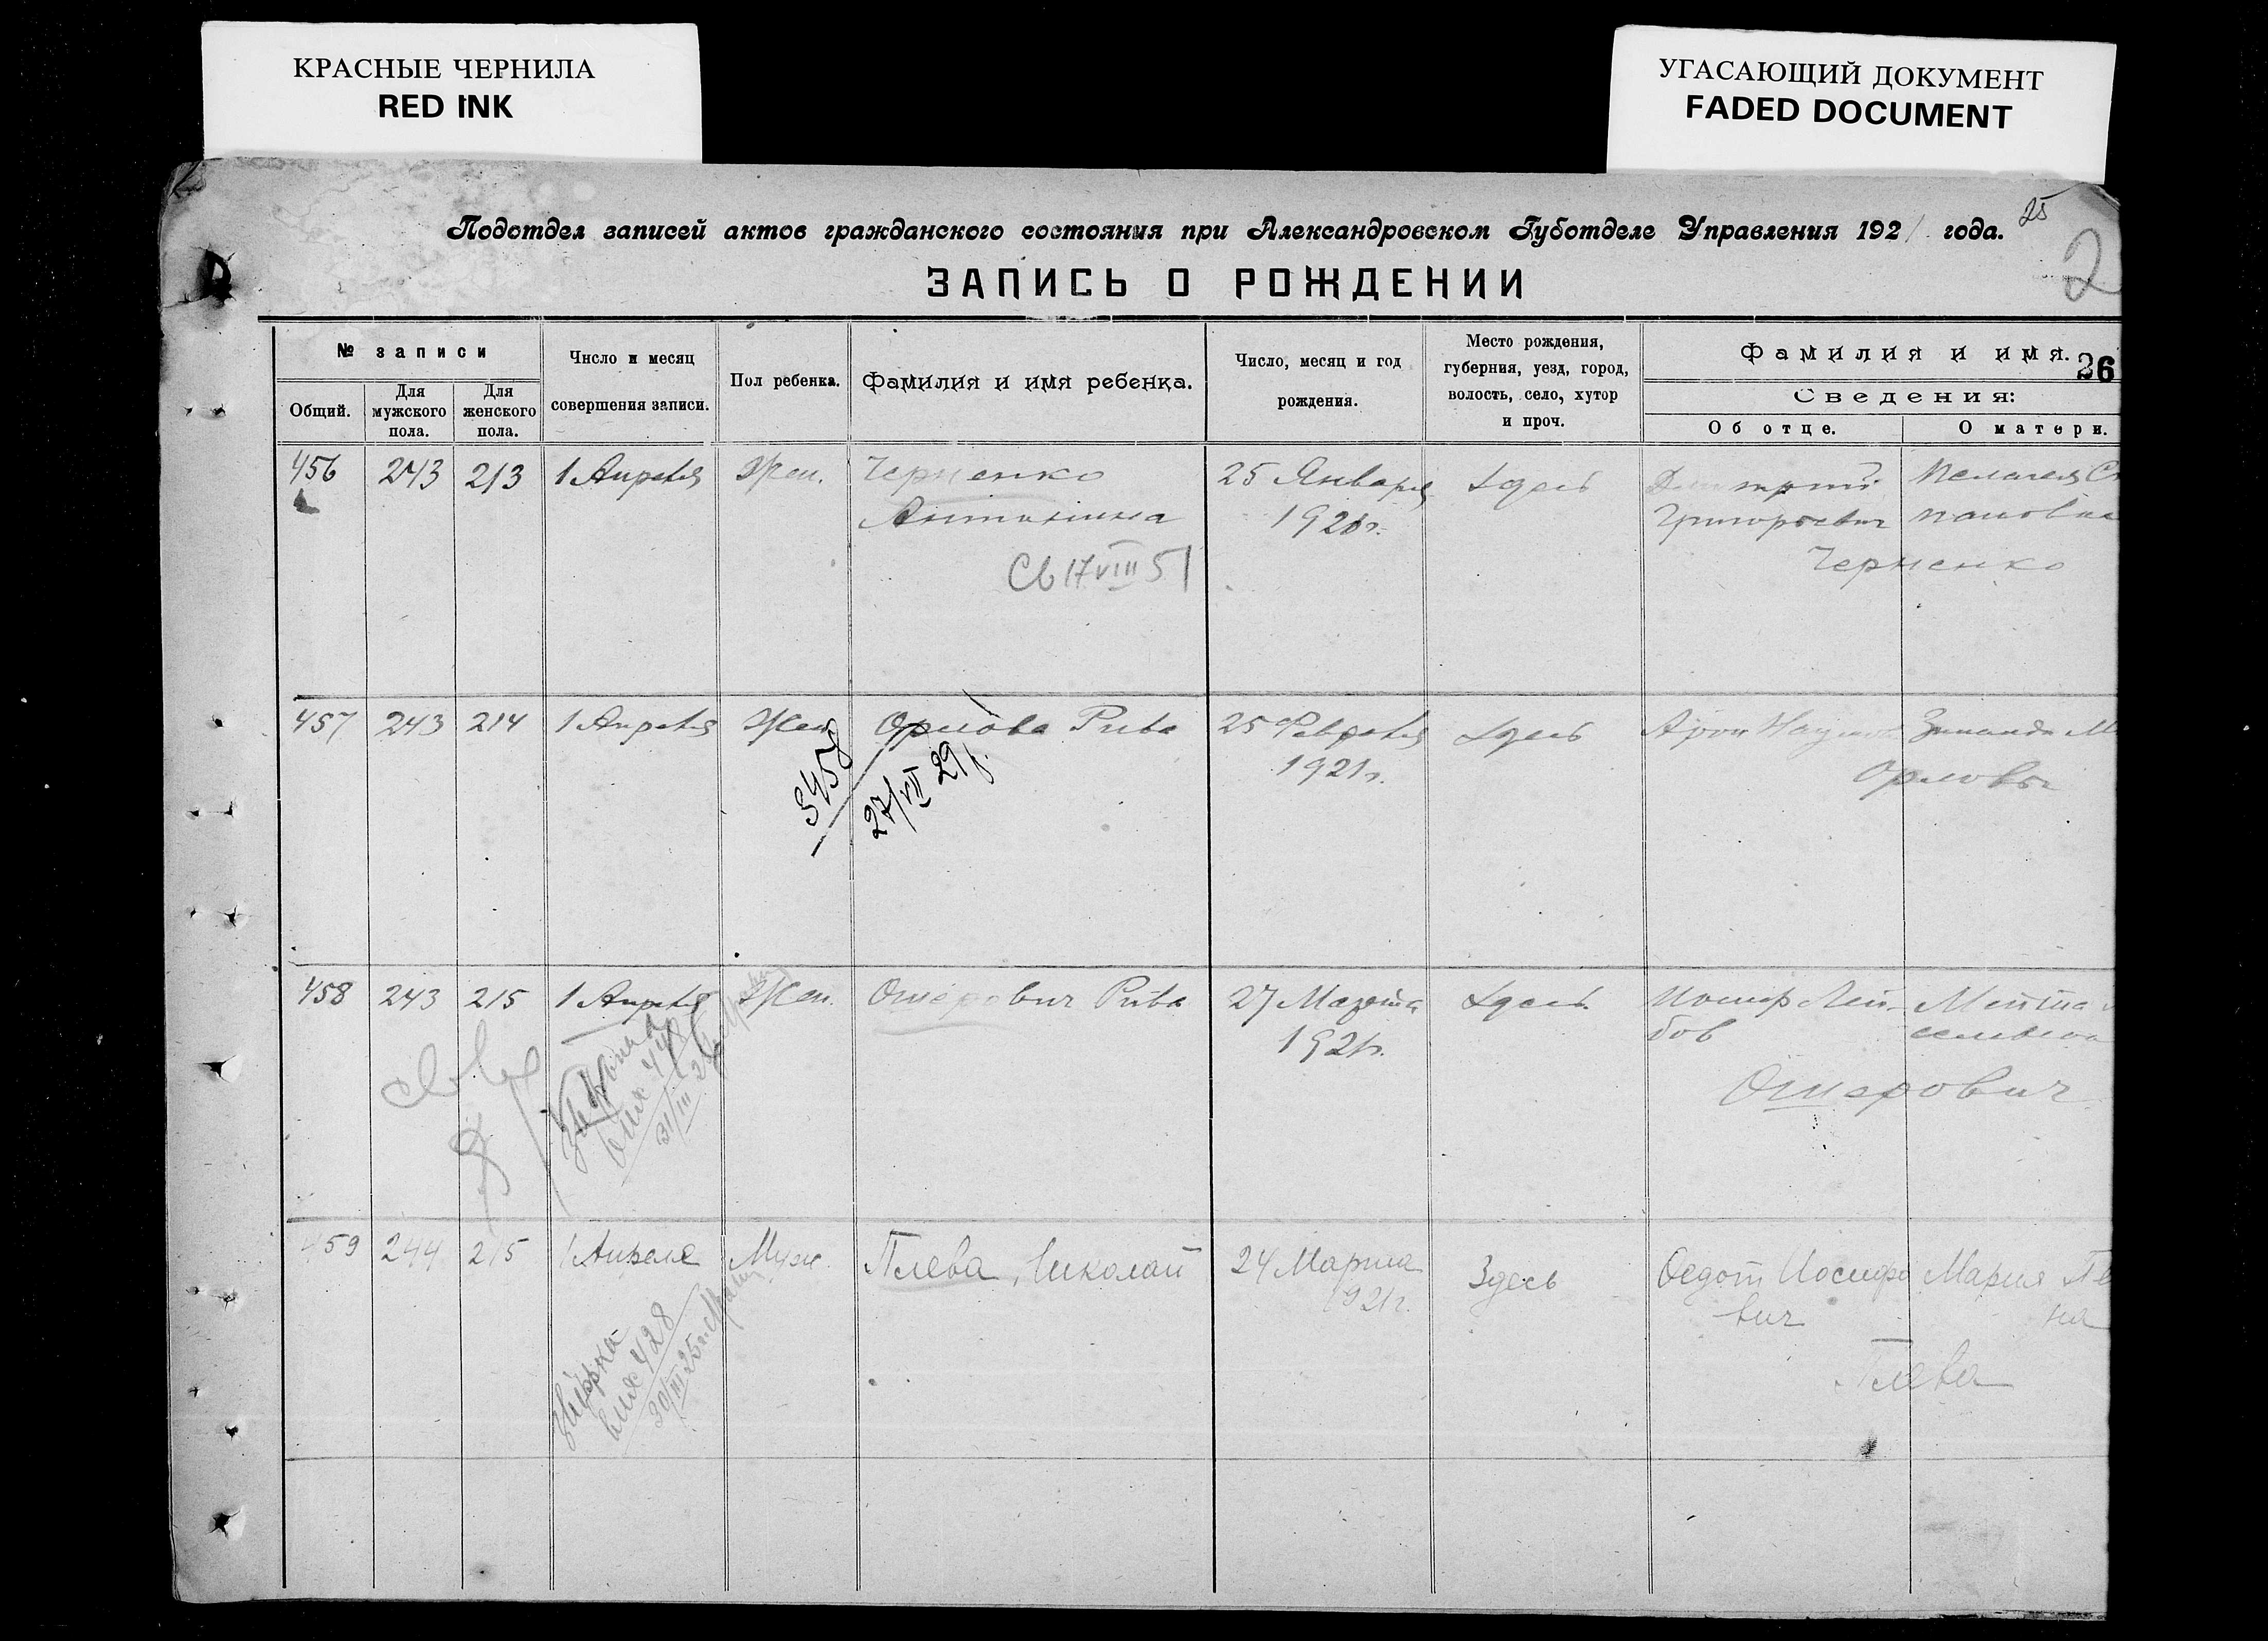 КРАСНЫЕ ЧЕРНИЛА
RED INK
УГАСАЮЩИЙ ДОКУМЕНТ
FADED DOCUMENT
25
Подотдел записей актов гражданского состояния при Александровском Губотделе Управления 1921 года.
2
ЗАПИСЬ О РОЖДЕНИИ
№ записи
Общий.
Для мужского пола.
Для женского пола.
Число и месяц
совершения записи.
Пол ребенка.
Фамилия и имя ребенка.
Число, месяц и год
рождения.
Место рождения,
губерния, уезд, город,
волость, село, хутор
и проч.
Фамилия и имя.
26
Сведения:
Об отце.
О матери.
456 243 213 1 Апреля Жен. Черненко 25 Января Здесь Дмитрий Пелагея С
Антонина 1921г. Григорьевич
Черненко
Св 17 VIII 51
457 243 214 1 Апреля Жен. Орлова Рива 25 Февраля Здесь Арон Зинаида М
1921г. Орловы
3458
27/VII 29г.
458 243 215 1 Апреля Жен. Ошерович Рива 27 Марта Здесь Лей-
1921г. бов
Ошерович
448
31/III 2
459 244 215 1 Апреля Муж. Плева Николай 24 Марта Здесь Федот Иосифо Мария
1921г. вич
Плева
428
30/III 25г.